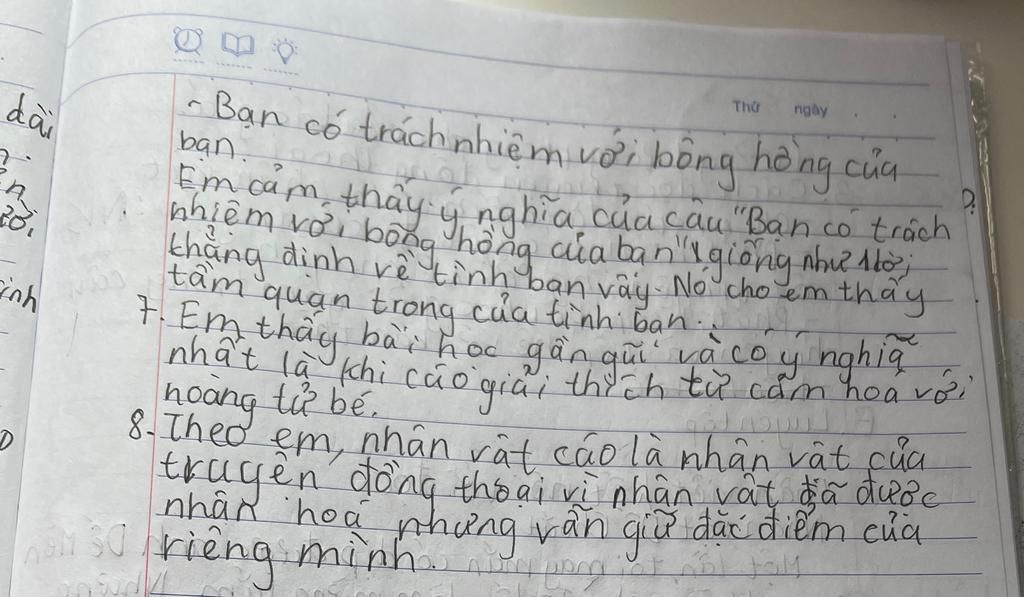 dài
Thứ ngày
- Bạn có trách nhiệm với bông hồng của
bạn.
Em cảm thấy ý nghĩa của câu "Bạn có trách
nhiệm với bông hồng của bạn" giống như lời
thẳng định về tình bạn vậy. Nó cho em thấy
tầm quan trọng của tình bạn.
7. Em thấy bài học gần gũi và có ý nghĩa
nhất là khi cáo giải thích từ cảm hoá với
hoàng tử bé.
8. Theo em, nhân vật cáo là nhân vật của
truyện đồng thoại vì nhân vật đã được
nhân hoá nhưng vẫn giữ đặc điểm của
riêng mình